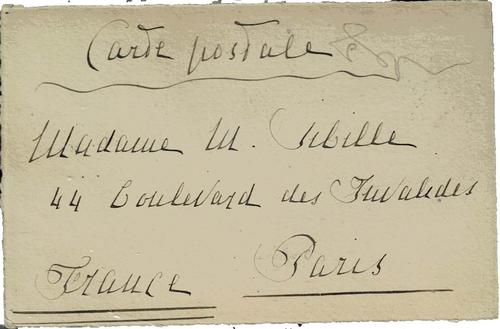 Carte postale
Madame M. Sibille
44 boulevard des Invalides
Paris
France